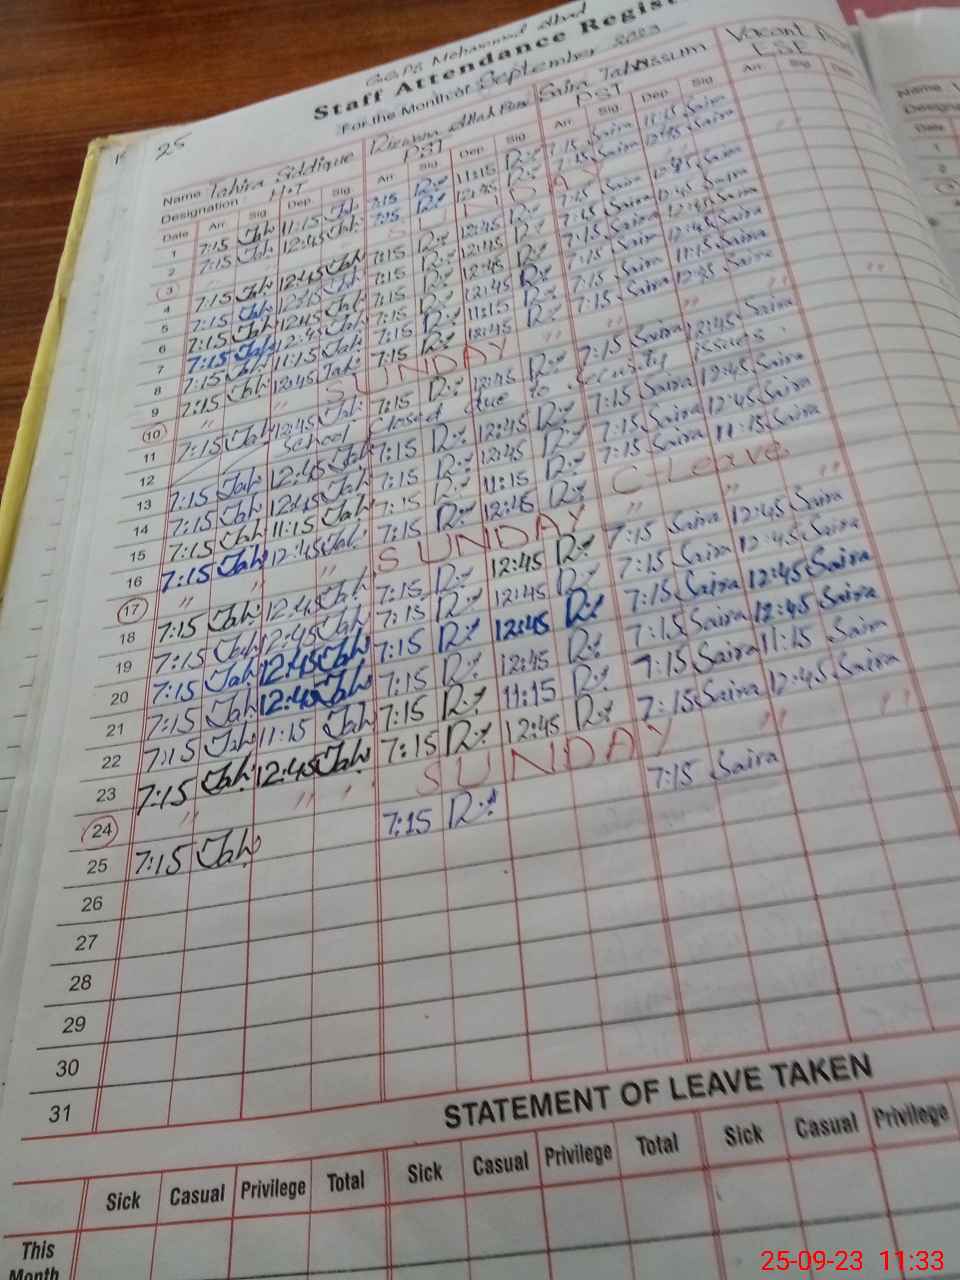 25
Staff Attendance Regist
For the Month of September 2023
Name Tahira Siddique Rizwana Saira Vacant
Designation: PST PST ESE
Date Arr. Sig Dep. Sig Arr. Sig Dep. Sig Arr. Sig Dep. Sig Arr. Sig Dep.
1 7:15 Tah 11:15 Tah 7:15 R 11:15 R 7:15 Saira 11:15 Saira
2 7:15 Tah 12:45 Tah 7:15 R 12:45 R 7:15 Saira 12:45 Saira
3 SUNDAY
4 7:15 Tah 12:45 Tah 7:15 R 12:45 R 7:15 Saira 12:45 Saira
5 7:15 Tah 12:45 Tah 7:15 R 12:45 R 7:15 Saira 12:45 Saira
6 7:15 Tah 12:45 Tah 7:15 R 12:45 R 7:15 Saira 12:45 Saira
7 7:15 Tah 12:45 Tah 7:15 R 12:45 R 7:15 Saira 12:45 Saira
8 7:15 Tah 11:15 Tah 7:15 R 11:15 R 7:15 Saira 11:15 Saira
9 7:15 Tah 12:45 Tah 7:15 R 12:45 R 7:15 Saira 12:45 Saira
10 " " SUNDAY " " " "
11 7:15 Tah 12:45 Tah 7:15 R 12:45 R 7:15 Saira 12:45 Saira
12 School closed due to security issues.
13 7:15 Tah 12:45 Tah 7:15 R 12:45 R 7:15 Saira 12:45 Saira
14 7:15 Tah 12:45 Tah 7:15 R 12:45 R 7:15 Saira 12:45 Saira
15 7:15 Tah 11:15 Tah 7:15 R 11:15 R 7:15 Saira 11:15 Saira
16 7:15 Tah 12:45 Tah 7:15 R 12:45 R C-Leave
17 " " " SUNDAY " " "
18 7:15 Tah 12:45 Tah 7:15 R 12:45 R 7:15 Saira 12:45 Saira
19 7:15 Tah 12:45 Tah 7:15 R 12:45 R 7:15 Saira 12:45 Saira
20 7:15 Tah 12:45 Tah 7:15 R 12:45 R 7:15 Saira 12:45 Saira
21 7:15 Tah 12:45 Tah 7:15 R 12:45 R 7:15 Saira 12:45 Saira
22 7:15 Tah 11:15 Tah 7:15 R 11:15 R 7:15 Saira 11:15 Saira
23 7:15 Tah 12:45 Tah 7:15 R 12:45 R 7:15 Saira 12:45 Saira
24 " " ' SUNDAY " "
25 7:15 Tah 7:15 R 7:15 Saira
26
27
28
29
30
31
STATEMENT OF LEAVE TAKEN
Sick Casual Privilege Total Sick Casual Privilege Total Sick Casual Privilege
This
Month
Name
Designa
Date
1
2
25-09-23 11:33